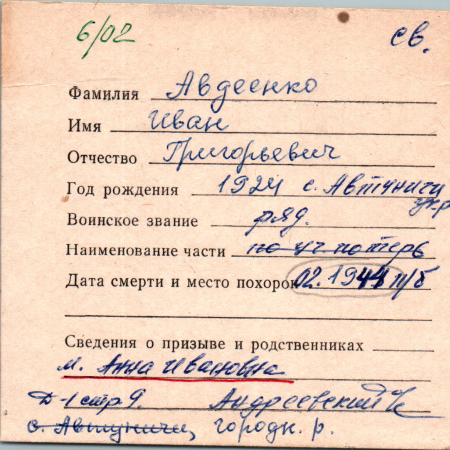 6/02 св.
Фамилия Авдеенко
Имя Иван
Отчество Григорьевич
Год рождения 1924 с. Автуничи
Воинское звание ряд.
Наименование части по уч. потерь
Дата смерти и место похорон 02.1944 п/б
Сведения о призыве и родственниках
м. Анна Ивановна
Д-1 стр 9. Андреевский
с. Автуничи, городн. р.